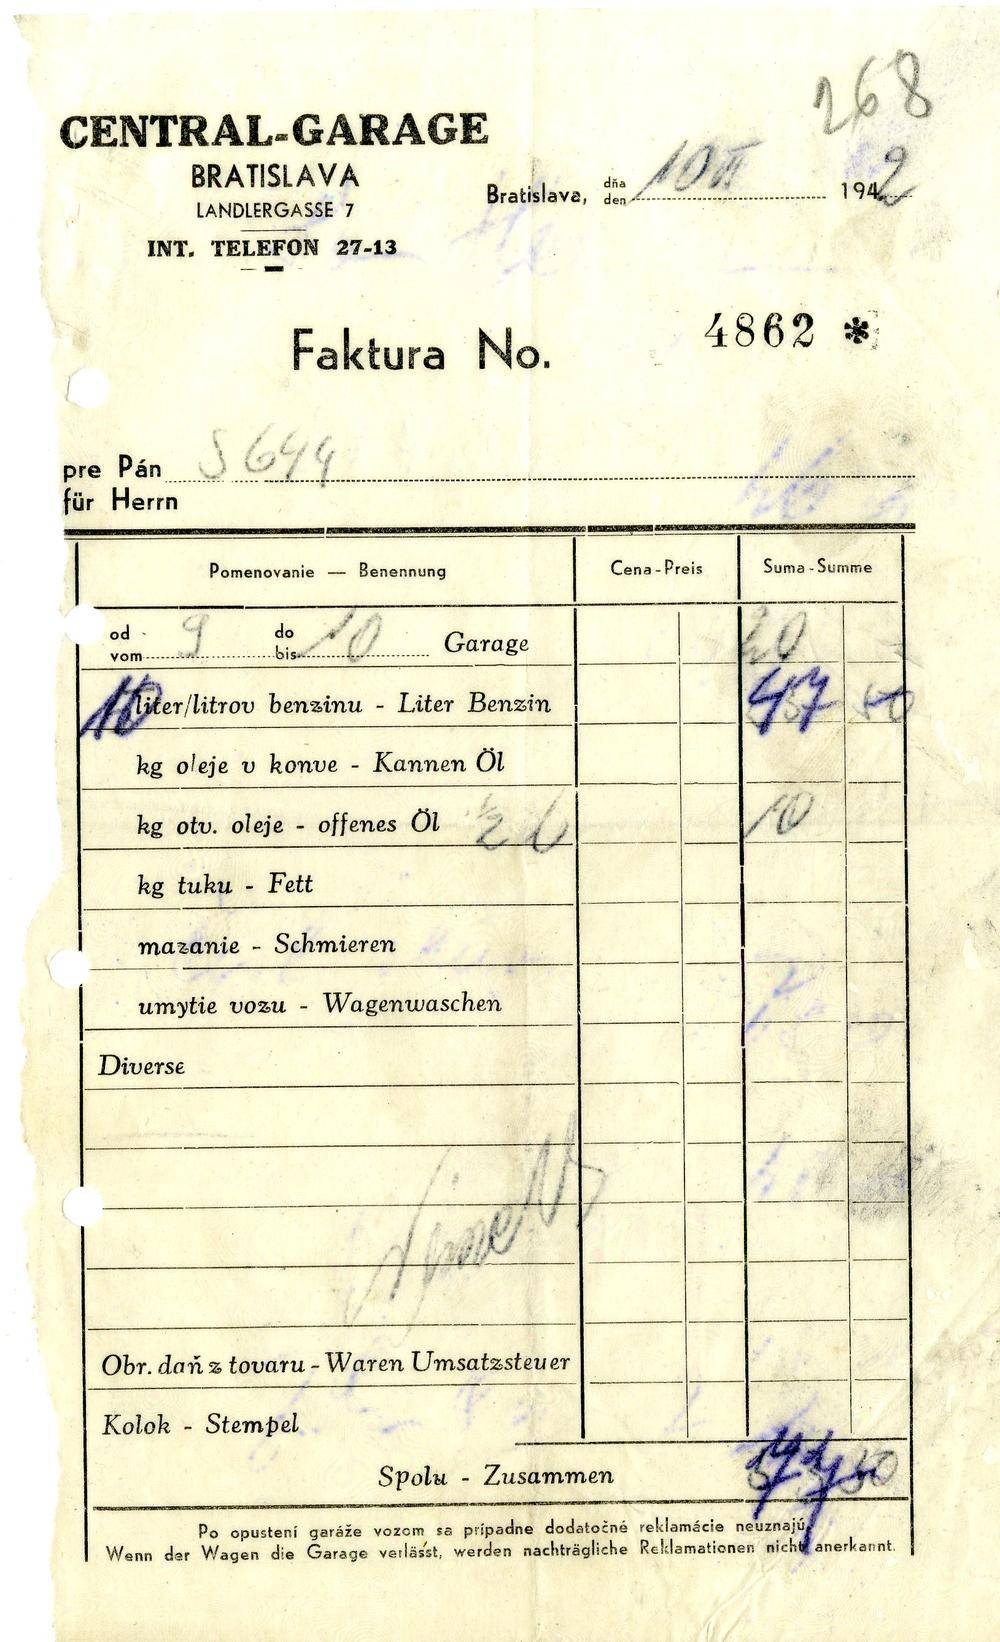 268
CENTRAL-GARAGE
BRATISLAVA
LANDLERGASSE 7
INT. TELEFON 27-13
Bratislava, dňa/den 10 VI 1942
Faktura No. 4862 *
pre Pán S 644
für Herrn
Pomenovanie — Benennung Cena-Preis Suma-Summe
od/vom 9 do/bis 10 Garage 20
10 liter/litrov benzinu - Liter Benzin 47
kg oleje v konve - Kannen Öl
kg otv. oleje - offenes Öl 1/2 10
kg tuku - Fett
mazanie - Schmieren
umytie vozu - Wagenwaschen
Diverse
Obr. daň z tovaru - Waren Umsatzsteuer
Kolok - Stempel
Spolu - Zusammen 77
Po opustení garáže vozom sa prípadne dodatočné reklamácie neuznajú
Wenn der Wagen die Garage verlässt, werden nachträgliche Reklamationen nicht anerkannt.